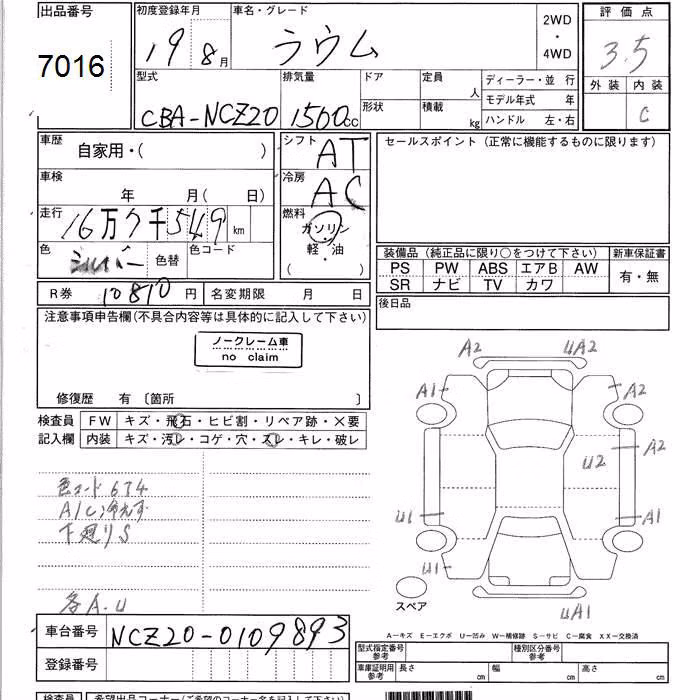 出品番号
7016
初度登録年月
19 8月
車名・グレード
ラウム
2WD
・
4WD
評価点
3.5
外装 内装
C
型式
CBA-NCZ20
排気量
1500cc
ドア
形状
定員 人
積載 kg
ディーラー・並行
モデル年式 年
ハンドル 左・右
車歴
自家用・( )
車検
年 月( 日)
走行
16万7千549km
色
シルバー
色替
色コード
シフト
AT
冷房
AC
燃料
ガソリン
・
軽・油
・
( )
セールスポイント (正常に機能するものに限ります)
装備品 (純正品に限り○をつけて下さい)
PS PW ABS エアB AW
SR ナビ TV カワ
新車保証書
有・無
R券 10810円
名変期限 月 日
後日品
注意事項申告欄(不具合内容等は具体的に記入して下さい)
ノークレーム車
no claim
修復歴 有 〔箇所 〕
検査員
記入欄
FW キズ・飛石・ヒビ割・リペア跡・×要
内装 キズ・汚レ・コゲ・穴・スレ・キレ・破レ
色コード 674
A/C冷えず
下廻りS
各A.U
A2 UA2
A1 A2
U2 A2
U1 A1
U1
UA1
スペア
A―キズ E―エクボ U―凹み W―補修跡 S―サビ C―腐食 XX―交換済
車台番号 NCZ20-0109893
登録番号
型式指定番号
参考
種別区分番号
参考
車庫証明用
参考
長さ cm 幅 cm 高さ cm
検査員 希望出品コーナー(ご希望のコーナー名を記入して下さい)